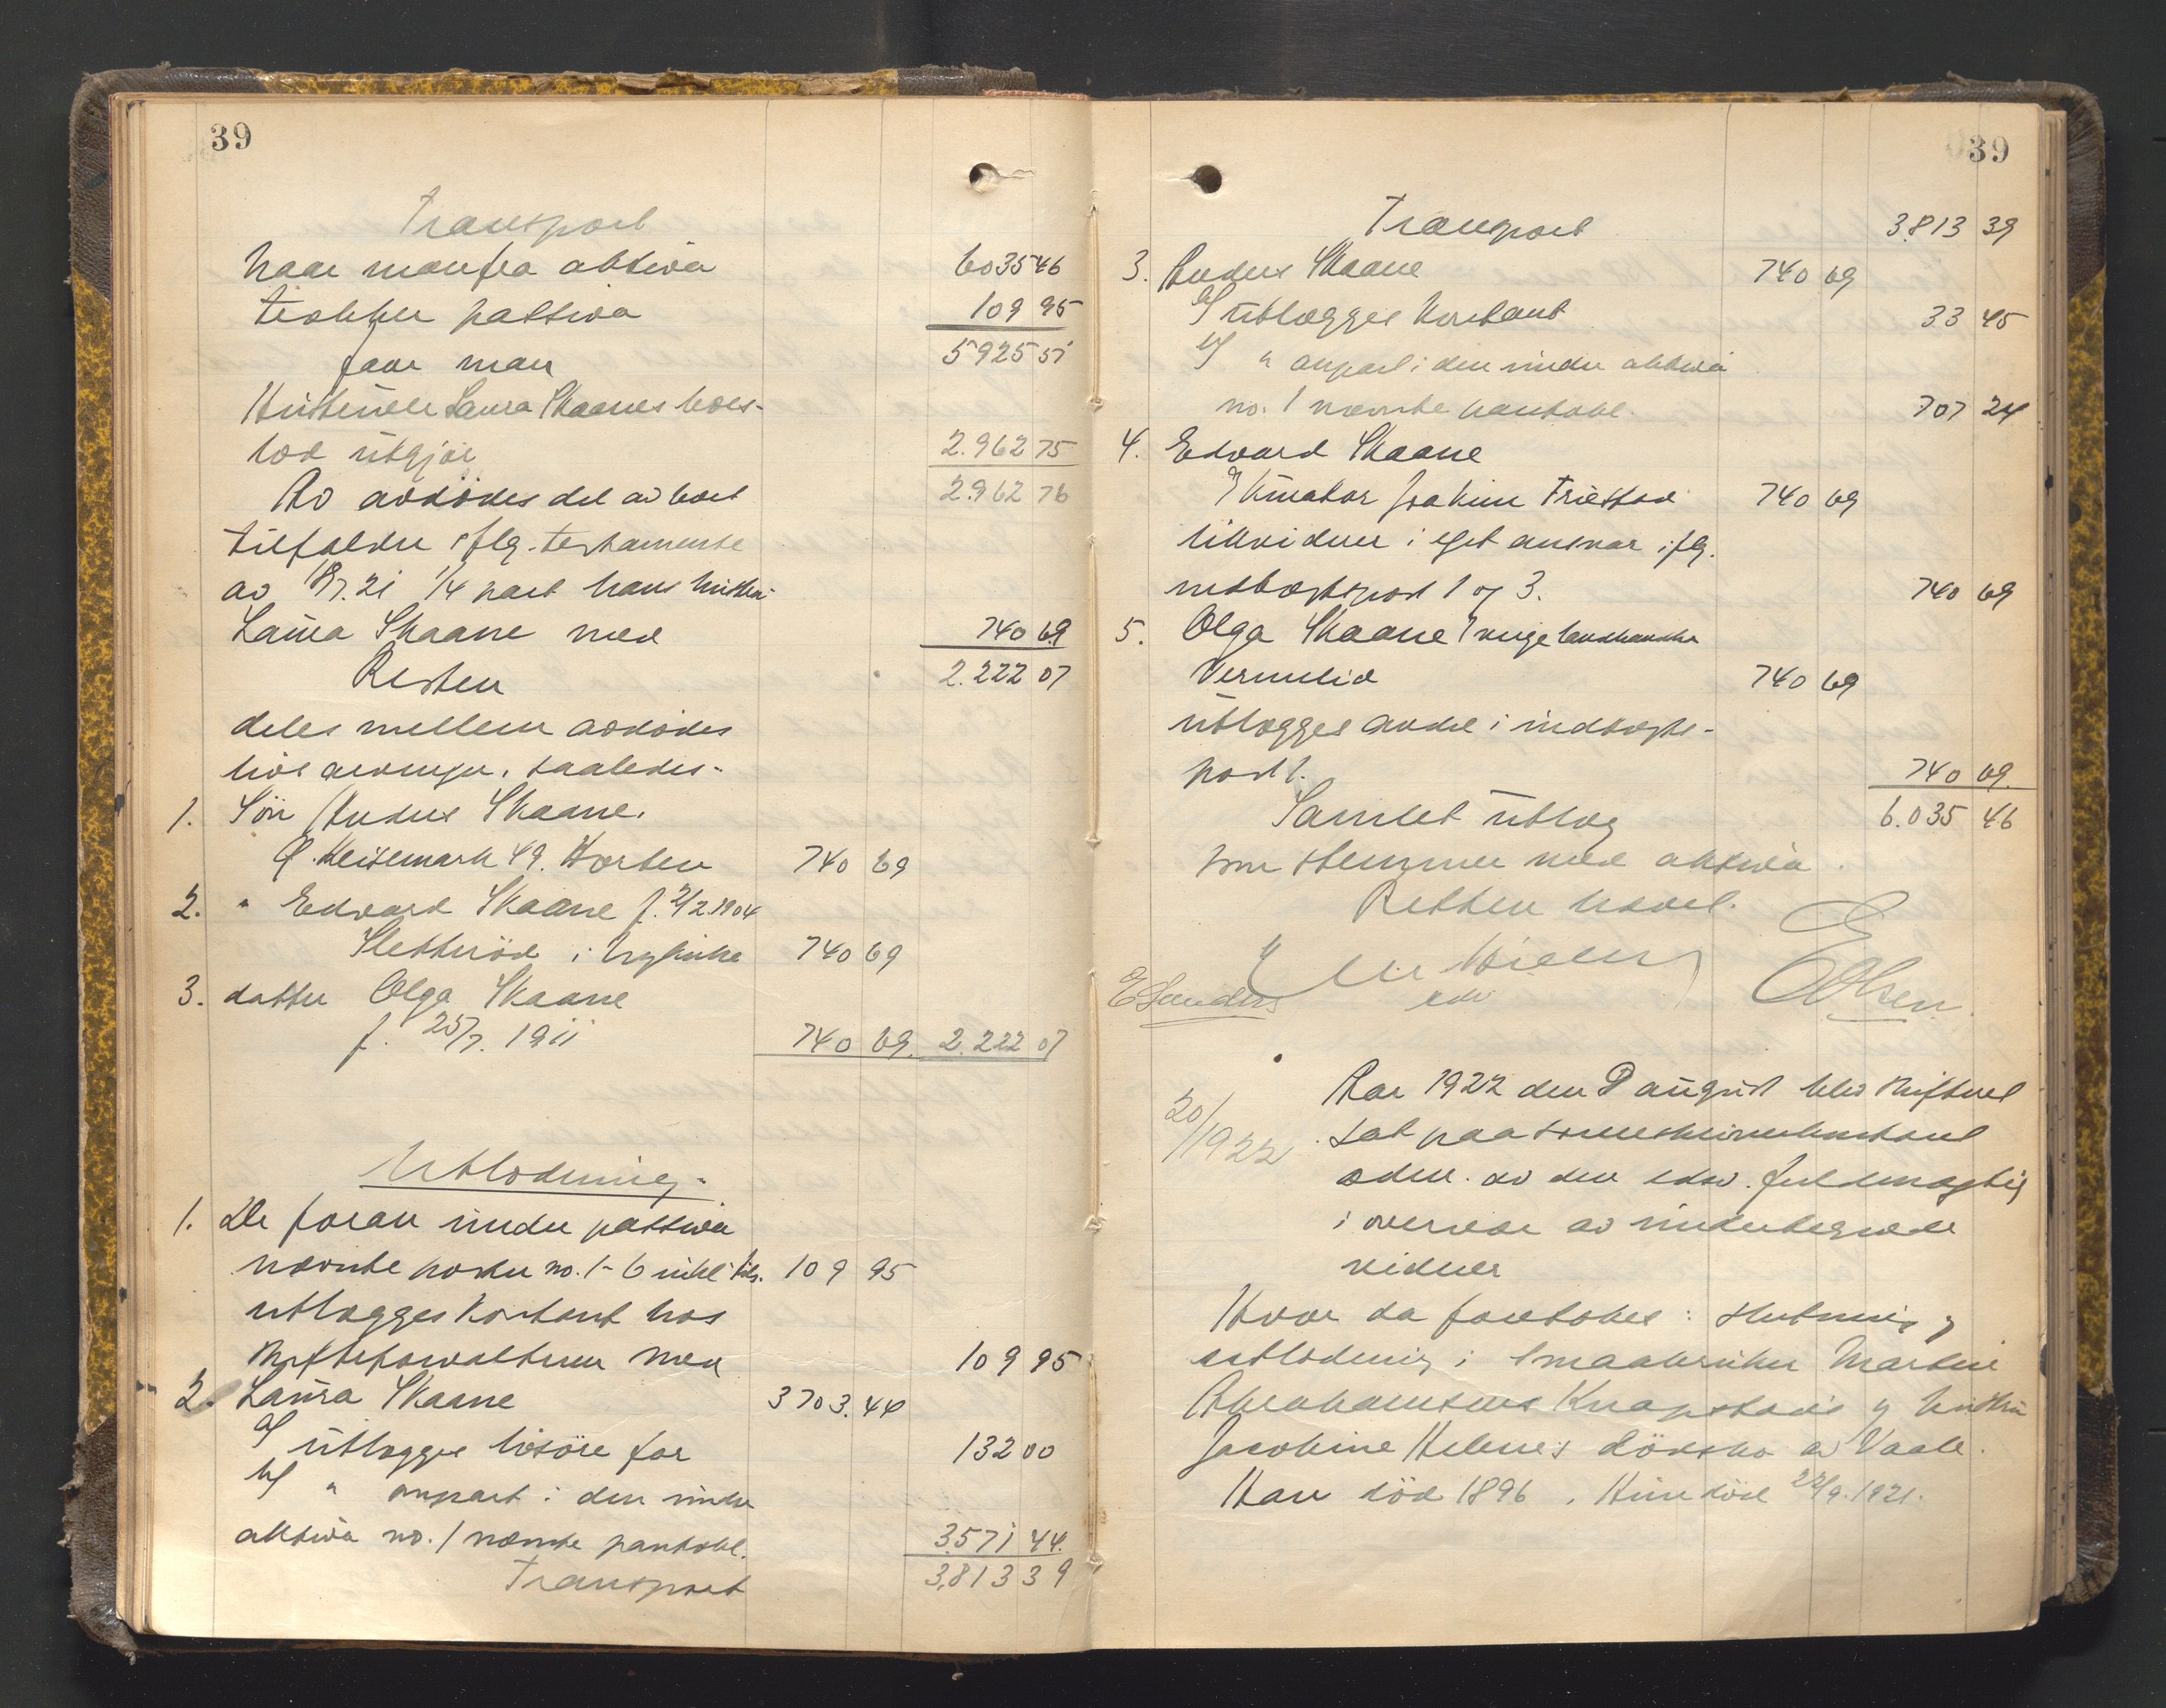 39
Transport
Naar man fra aktiva 6035 46
trækker passiva 109 95
faar man 5925 51
Hustruen Laura Skaanes boes-
lod utgjør 2.962 75
Av avdødes del av boet 2962 76
tilfalder iflg. testamente
av 18/7.21 1/4 part hans hustru
Laura Skaane med 740 69
Resten 2.222 07
deles mellem avdødes
livsarvinger, saaledes-
1. Søn Anders Skaane.
Keisemark 49. Horten 740 69
2. " Edvard Skaane f. 2/2 1904
Sletterød i 740 69
3. datter Olga Skaane
f. 25/7. 1911 740 69. 2.222 07
Utlodning-
1. De foran under passiva
nævnte poster no. 1-6 inkl. tils. 109 95
utlægges kontant hos
skifteforvalteren med 109 95
2. Laura Skaane 3703.44
a/ utlægges løsøre for 132 00
b/ " anpart i den under
aktiva no. 1 nævnte pantobl. 3571 44.
Transport 3,813 39
39
Transport 3.813 39
3. Anders Skaane 740 69
a/ utlægges kontant 33 45
b/ " anpart i den under aktiva
no. 1 nævnte pantobl. 707 24
4. Edvard Skaane
v/ kurator Joakim Frøstad 740 69
likviderer i eget ansvar iflg.
indtægtspost 1 og 3. 740 69
5. Olga Skaane v/ verge landhandler
Vermelid 740 69
utlægges andel i indtægts-
post 1. 740 69.
Samlet utlæg 6.035 46
som stemmer med aktiva.
Retten hævet.
edv
E Olsen.
20/1922
Aar 1922 den 8 august blev skifteret
sat paa sorenskriverkontoret
adm. av den edsv. fuldmægtig
i overvær av undertegnede
vidner
Hvor da foretokes: slutning og
utlodning i smaabruker Martin
Abrahamsens Knapstad's og hustru
Jacobine Helene's dødsbo av Vaale.
Han død 1896, Hun død 22/9. 1921.